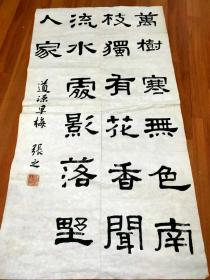 萬樹寒無色南
枝獨有花香聞
流水處影落野
人家
道源早梅 張之